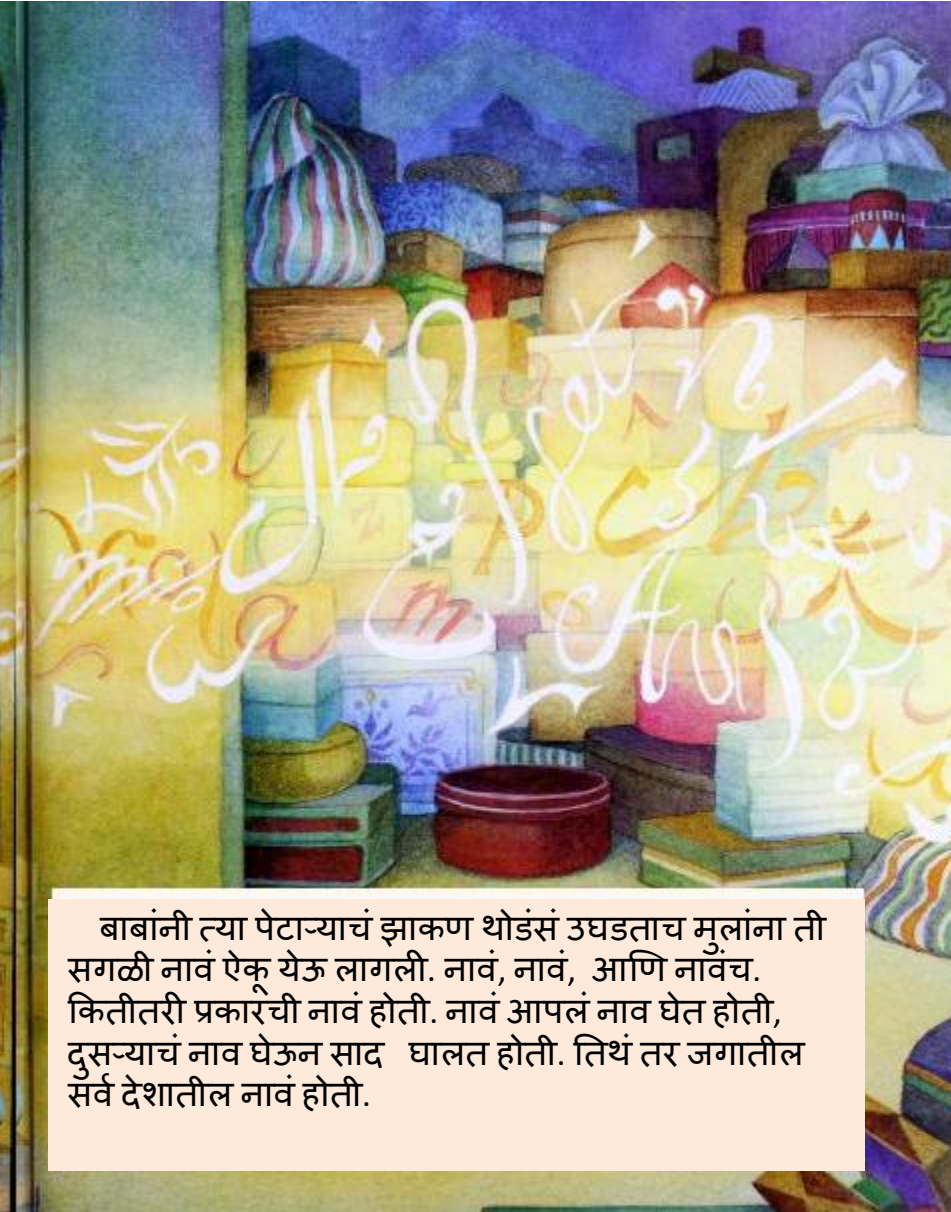 बाबांनी त्या पेटाऱ्याचं झाकण थोडंसं उघडताच मुलांना ती
सगळी नावं ऐकू येऊ लागली. नावं, नावं, आणि नावंच.
कितीतरी प्रकारची नावं होती. नावं आपलं नाव घेत होती,
दुसऱ्याचं नाव घेऊन साद घालत होती. तिथं तर जगातील
सर्व देशातील नावं होती.